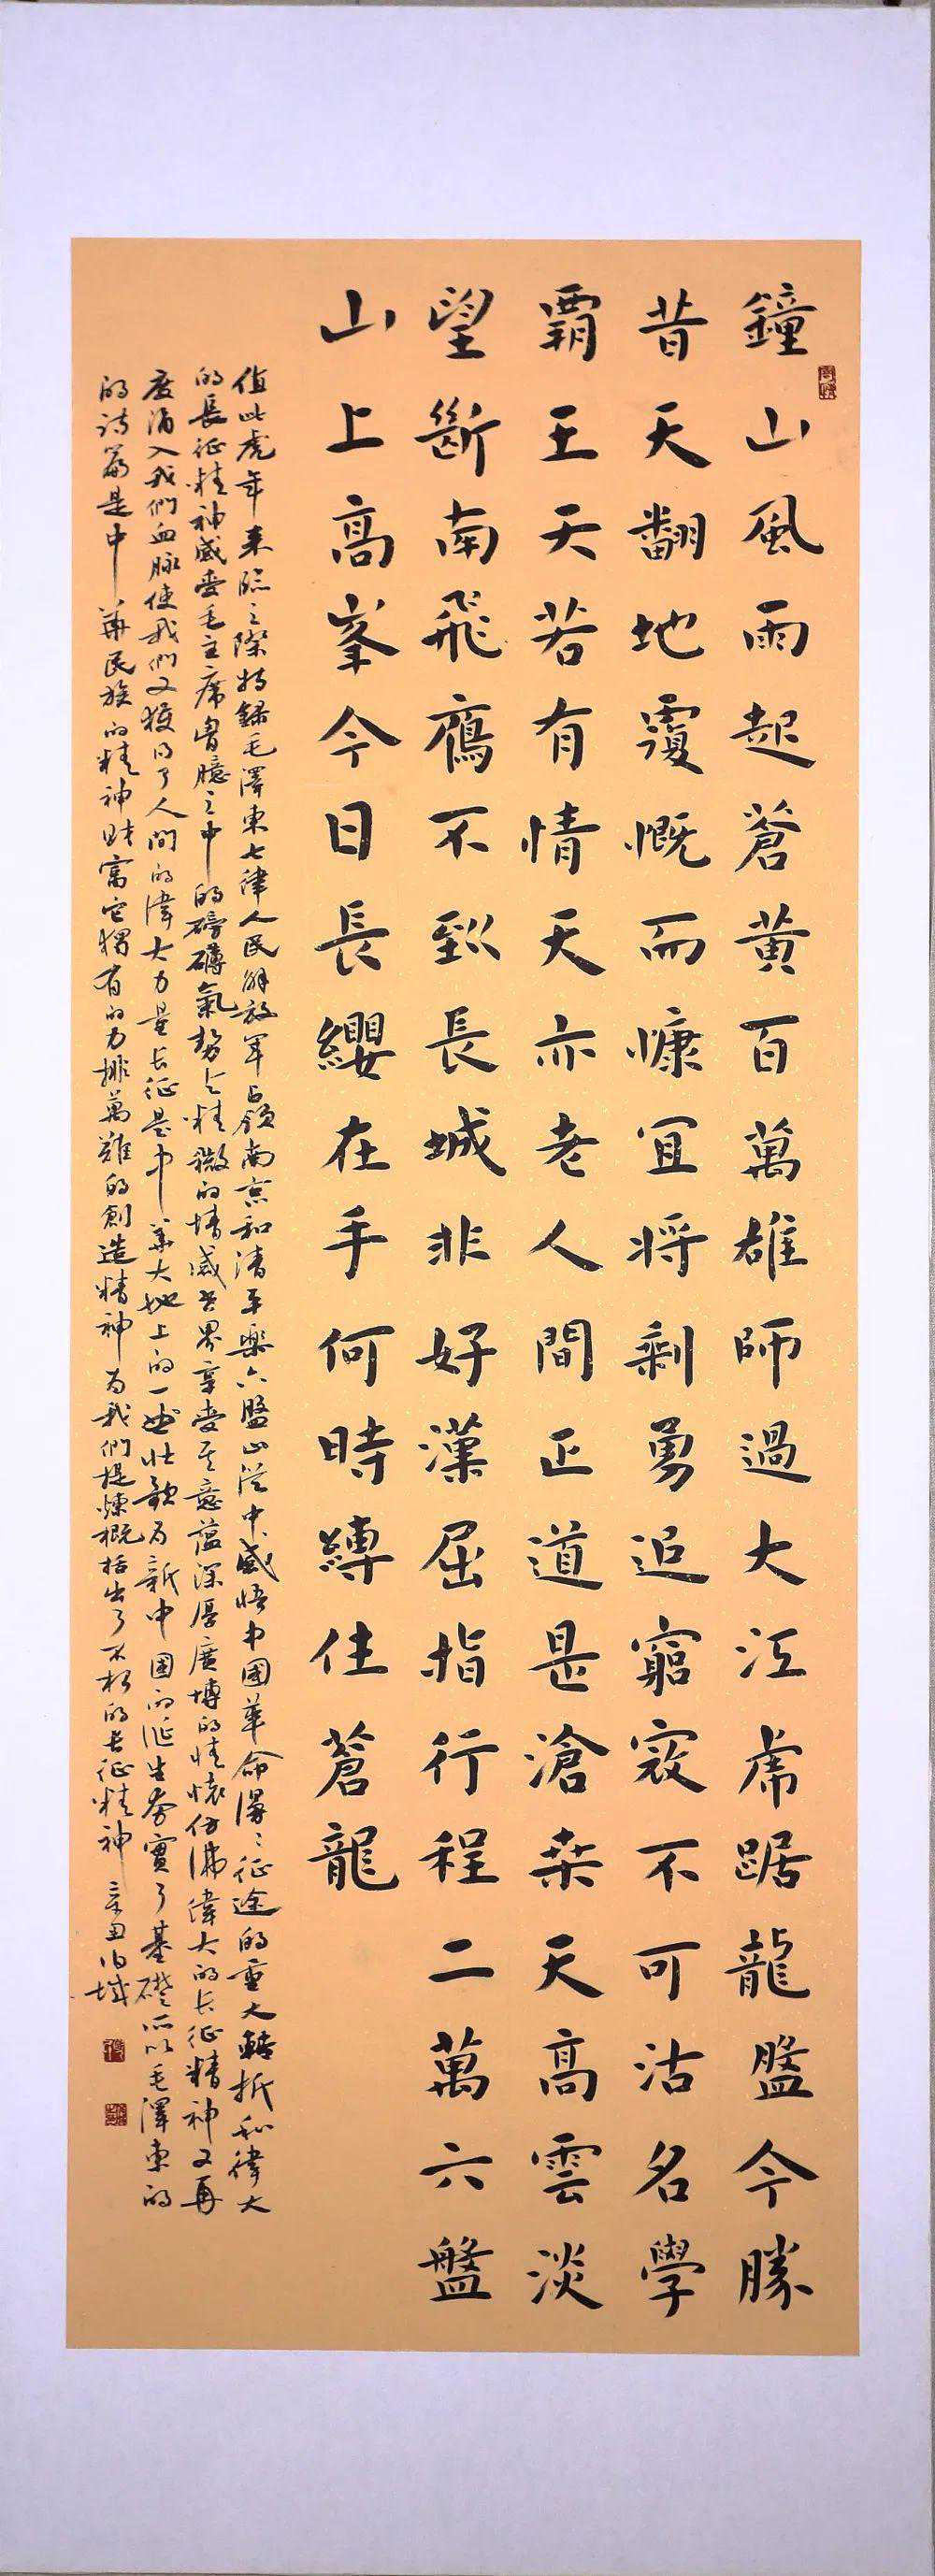 鐘山風雨起蒼黃百萬雄師過大江虎踞龍盤今勝
昔天翻地覆慨而慷宜將剩勇追窮寇不可沽名學
霸王天若有情天亦老人間正道是滄桑天高雲淡
望斷南飛鴈不到長城非好漢屈指行程二萬六盤
山上高峯今日長纓在手何時縛住蒼龍
值此虎年來臨之際特録毛澤東七律人民解放軍占領南京和清平樂六盤山從中感悟中國革命漫漫征途的重大轉折和偉大
的長征精神感受毛主席胷臆之中的磅礴氣勢与精微的情感世界享受其意蕴深厚廣博的情懷仿佛偉大的長征精神又再
度涌入我們血脉使我們又獲得了人間的偉大力量長征是中華大地上的一曲壯歌爲新中國的誕生夯實了基礎所以毛澤東的
的詩篇是中華民族的精神財富它獨有的力排萬難的創造精神爲我們提煉概括出了不朽的長征精神 辛丑